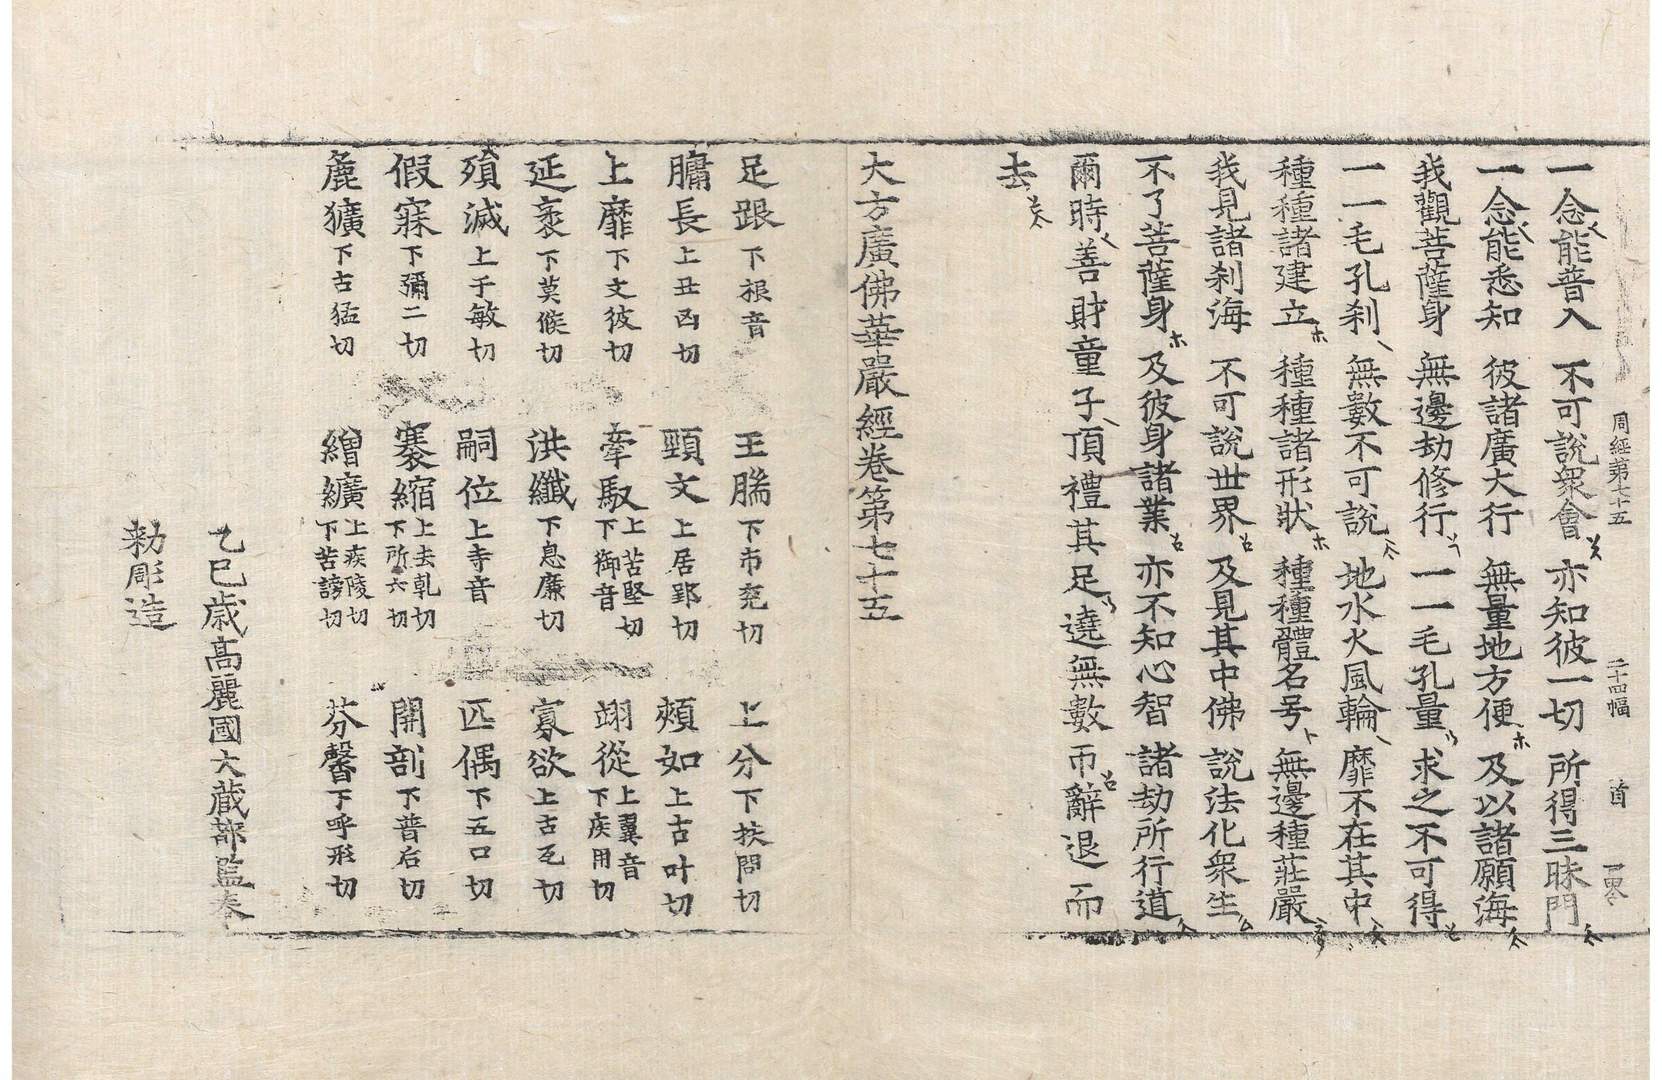 周經第七十五 二十四幅 首
一念能普入 不可說衆會 亦知彼一切 所得三昧門
一念能悉知 彼諸廣大行 無量地方便 及以諸願海
我觀菩薩身 無邊劫修行 一一毛孔量 求之不可得
一一毛孔刹 無數不可說 地水火風輪 靡不在其中
種種諸建立 種種諸形狀 種種體名号 無邊種莊嚴
我見諸刹海 不可說世界 及見其中佛 說法化衆生
不了菩薩身 及彼身諸業 亦不知心智 諸劫所行道
爾時善財童子頂禮其足遶無數帀辭退而
去
大方廣佛華嚴經卷第七十五
足跟下根音 王腨下市兖切 上分下扶問切
𦟛長上丑凶切 頸文上居郢切 頰如上古叶切
上靡下文彼切 牽馭上苦堅切下御音 翊從上翼音下疾用切
延袤下莫候切 洪纖下息廉切 寡欲上古瓦切
殞滅上于敏切 嗣位上寺音 匹偶下五口切
假寐下彌二切 褰縮上去乹切下所六切 開剖下普后切
麁獷下古猛切 繒纊上疾陵切下苦謗切 芬馨下呼形切
乙巳歳高麗國大藏都監奉
勅彫造